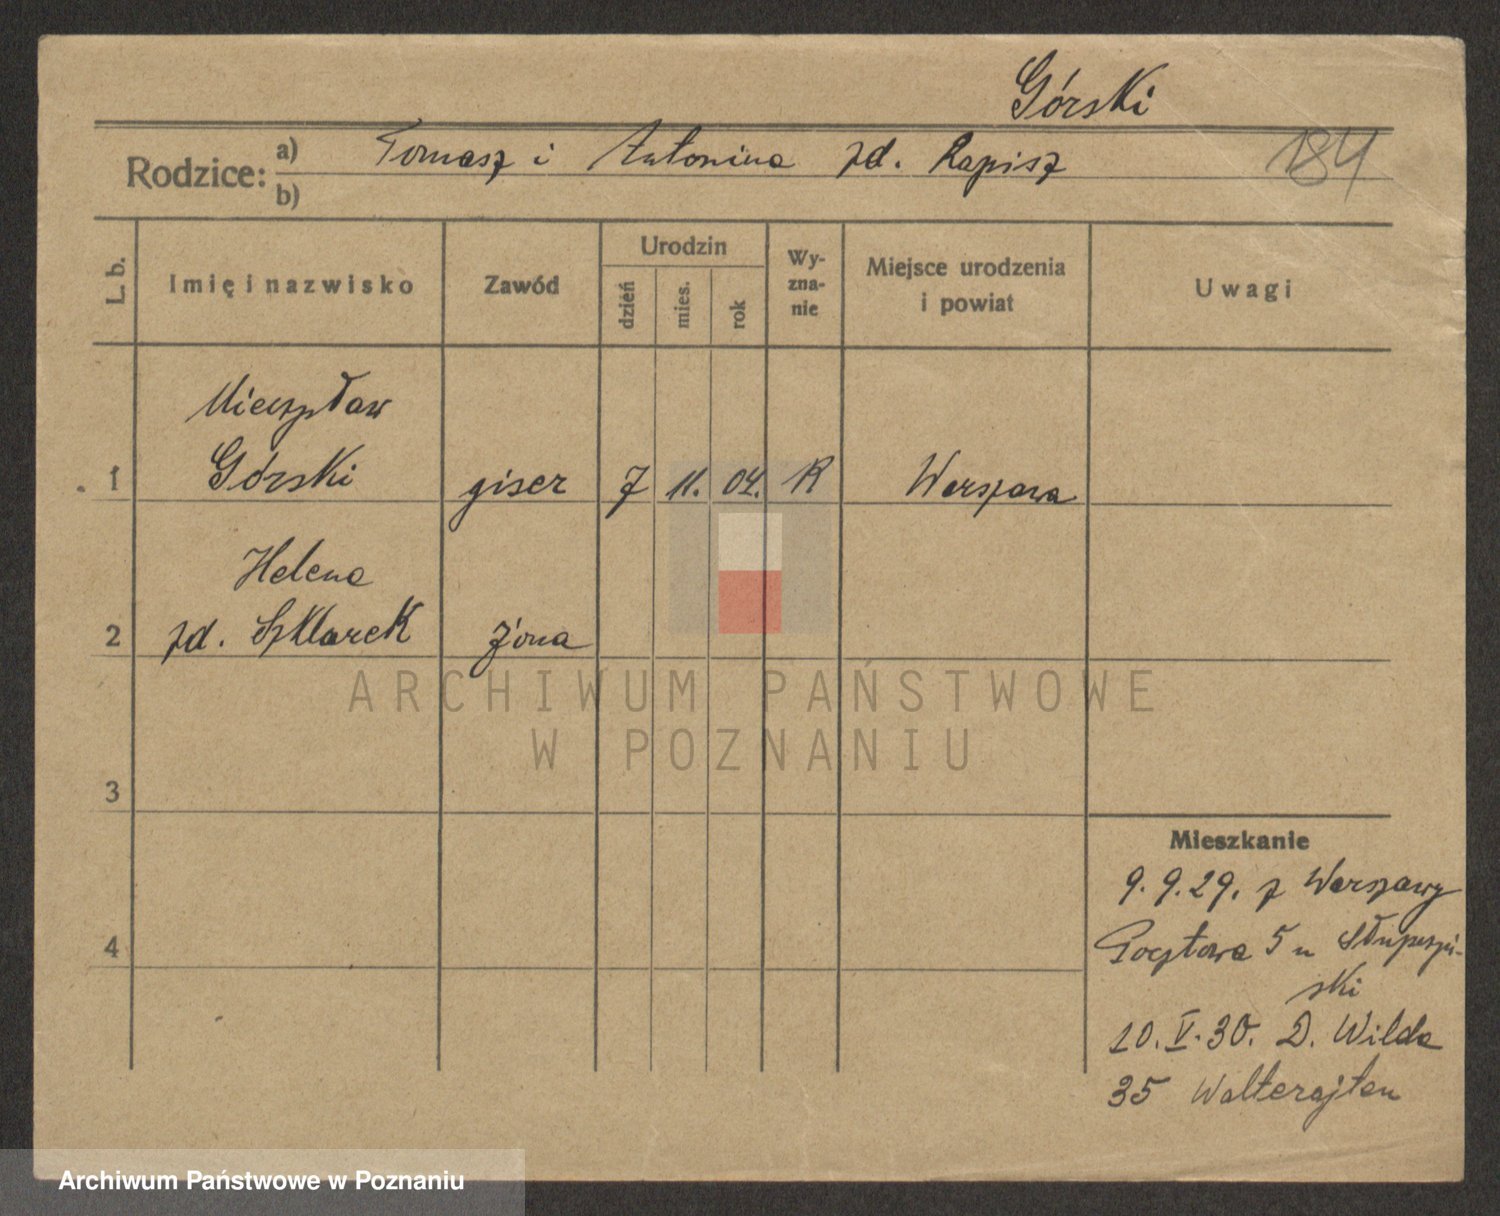 Górski
Rodzice: a) Tomasz i Antonina zd. Rapisz 184
b)
L. b. Imię i nazwisko Zawód Urodzin dzień mies. rok Wy-zna-nie Miejsce urodzenia i powiat Uwagi
Mieczysław
1 Górski giser 7 11. 04. R Warszawa
Helena
2 zd. Szklarek żona
ARCHIWUM PAŃSTWOWE
W POZNANIU
3
4
Mieszkanie
9.9.29. z Warszawy
Pocztowa 5 u
ski
10.V.30. D. Wilda
35
Archiwum Państwowe w Poznaniu